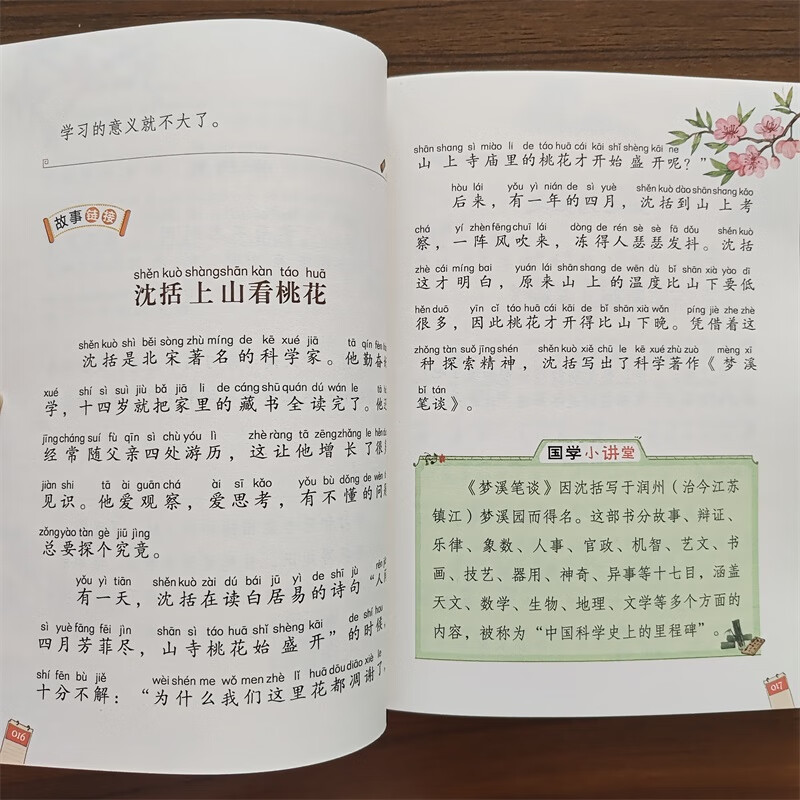 学习的意义就不大了。
故事链接
shěn kuò shàng shān kàn táo huā
沈括上山看桃花
shěn kuò shì běi sòng zhù míng de kē xué jiā tā qín fèn
沈括是北宋著名的科学家。他勤奋
xué shí sì suì jiù bǎ jiā li de cáng shū quán dú wán le
学，十四岁就把家里的藏书全读完了。他
jīng cháng suí fù qīn sì chù yóu lì zhè ràng tā zēng zhǎng le
经常随父亲四处游历，这让他增长了很
jiàn shi tā ài guān chá ài sī kǎo yǒu bù dǒng de wèn
见识。他爱观察，爱思考，有不懂的问
zǒng yào tàn gè jiū jìng
总要探个究竟。
yǒu yì tiān shěn kuò zài dú bái jū yì de shī jù
有一天，沈括在读白居易的诗句“人
sì yuè fāng fēi jìn shān sì táo huā shǐ shèng kāi de shí hou
四月芳菲尽，山寺桃花始盛开”的时候，
shí fēn bù jiě wèi shén me wǒ men zhè lǐ huā dōu diāo xiè le
十分不解：“为什么我们这里花都凋谢了，
016
shān shang sì miào li de táo huā cái kāi shǐ shèng kāi ne
山上寺庙里的桃花才开始盛开呢？”
hòu lái yǒu yì nián de sì yuè shěn kuò dào shān shang kǎo
后来，有一年的四月，沈括到山上考
chá yí zhèn fēng chuī lái dòng de rén sè sè fā dǒu shěn kuò
察，一阵风吹来，冻得人瑟瑟发抖。沈括
zhè cái míng bai yuán lái shān shang de wēn dù bǐ shān xià yào dī
这才明白，原来山上的温度比山下要低
hěn duō yīn cǐ táo huā cái kāi de bǐ shān xià wǎn píng jiè zhe zhè
很多，因此桃花才开得比山下晚。凭借着这
zhǒng tàn suǒ jīng shén shěn kuò xiě chū le kē xué zhù zuò mèng xī
种探索精神，沈括写出了科学著作《梦溪
bǐ tán
笔谈》。
国学小讲堂
《梦溪笔谈》因沈括写于润州（治今江苏
镇江）梦溪园而得名。这部书分故事、辩证、
乐律、象数、人事、官政、机智、艺文、书
画、技艺、器用、神奇、异事等十七目，涵盖
天文、数学、生物、地理、文学等多个方面的
内容，被称为“中国科学史上的里程碑”。
017